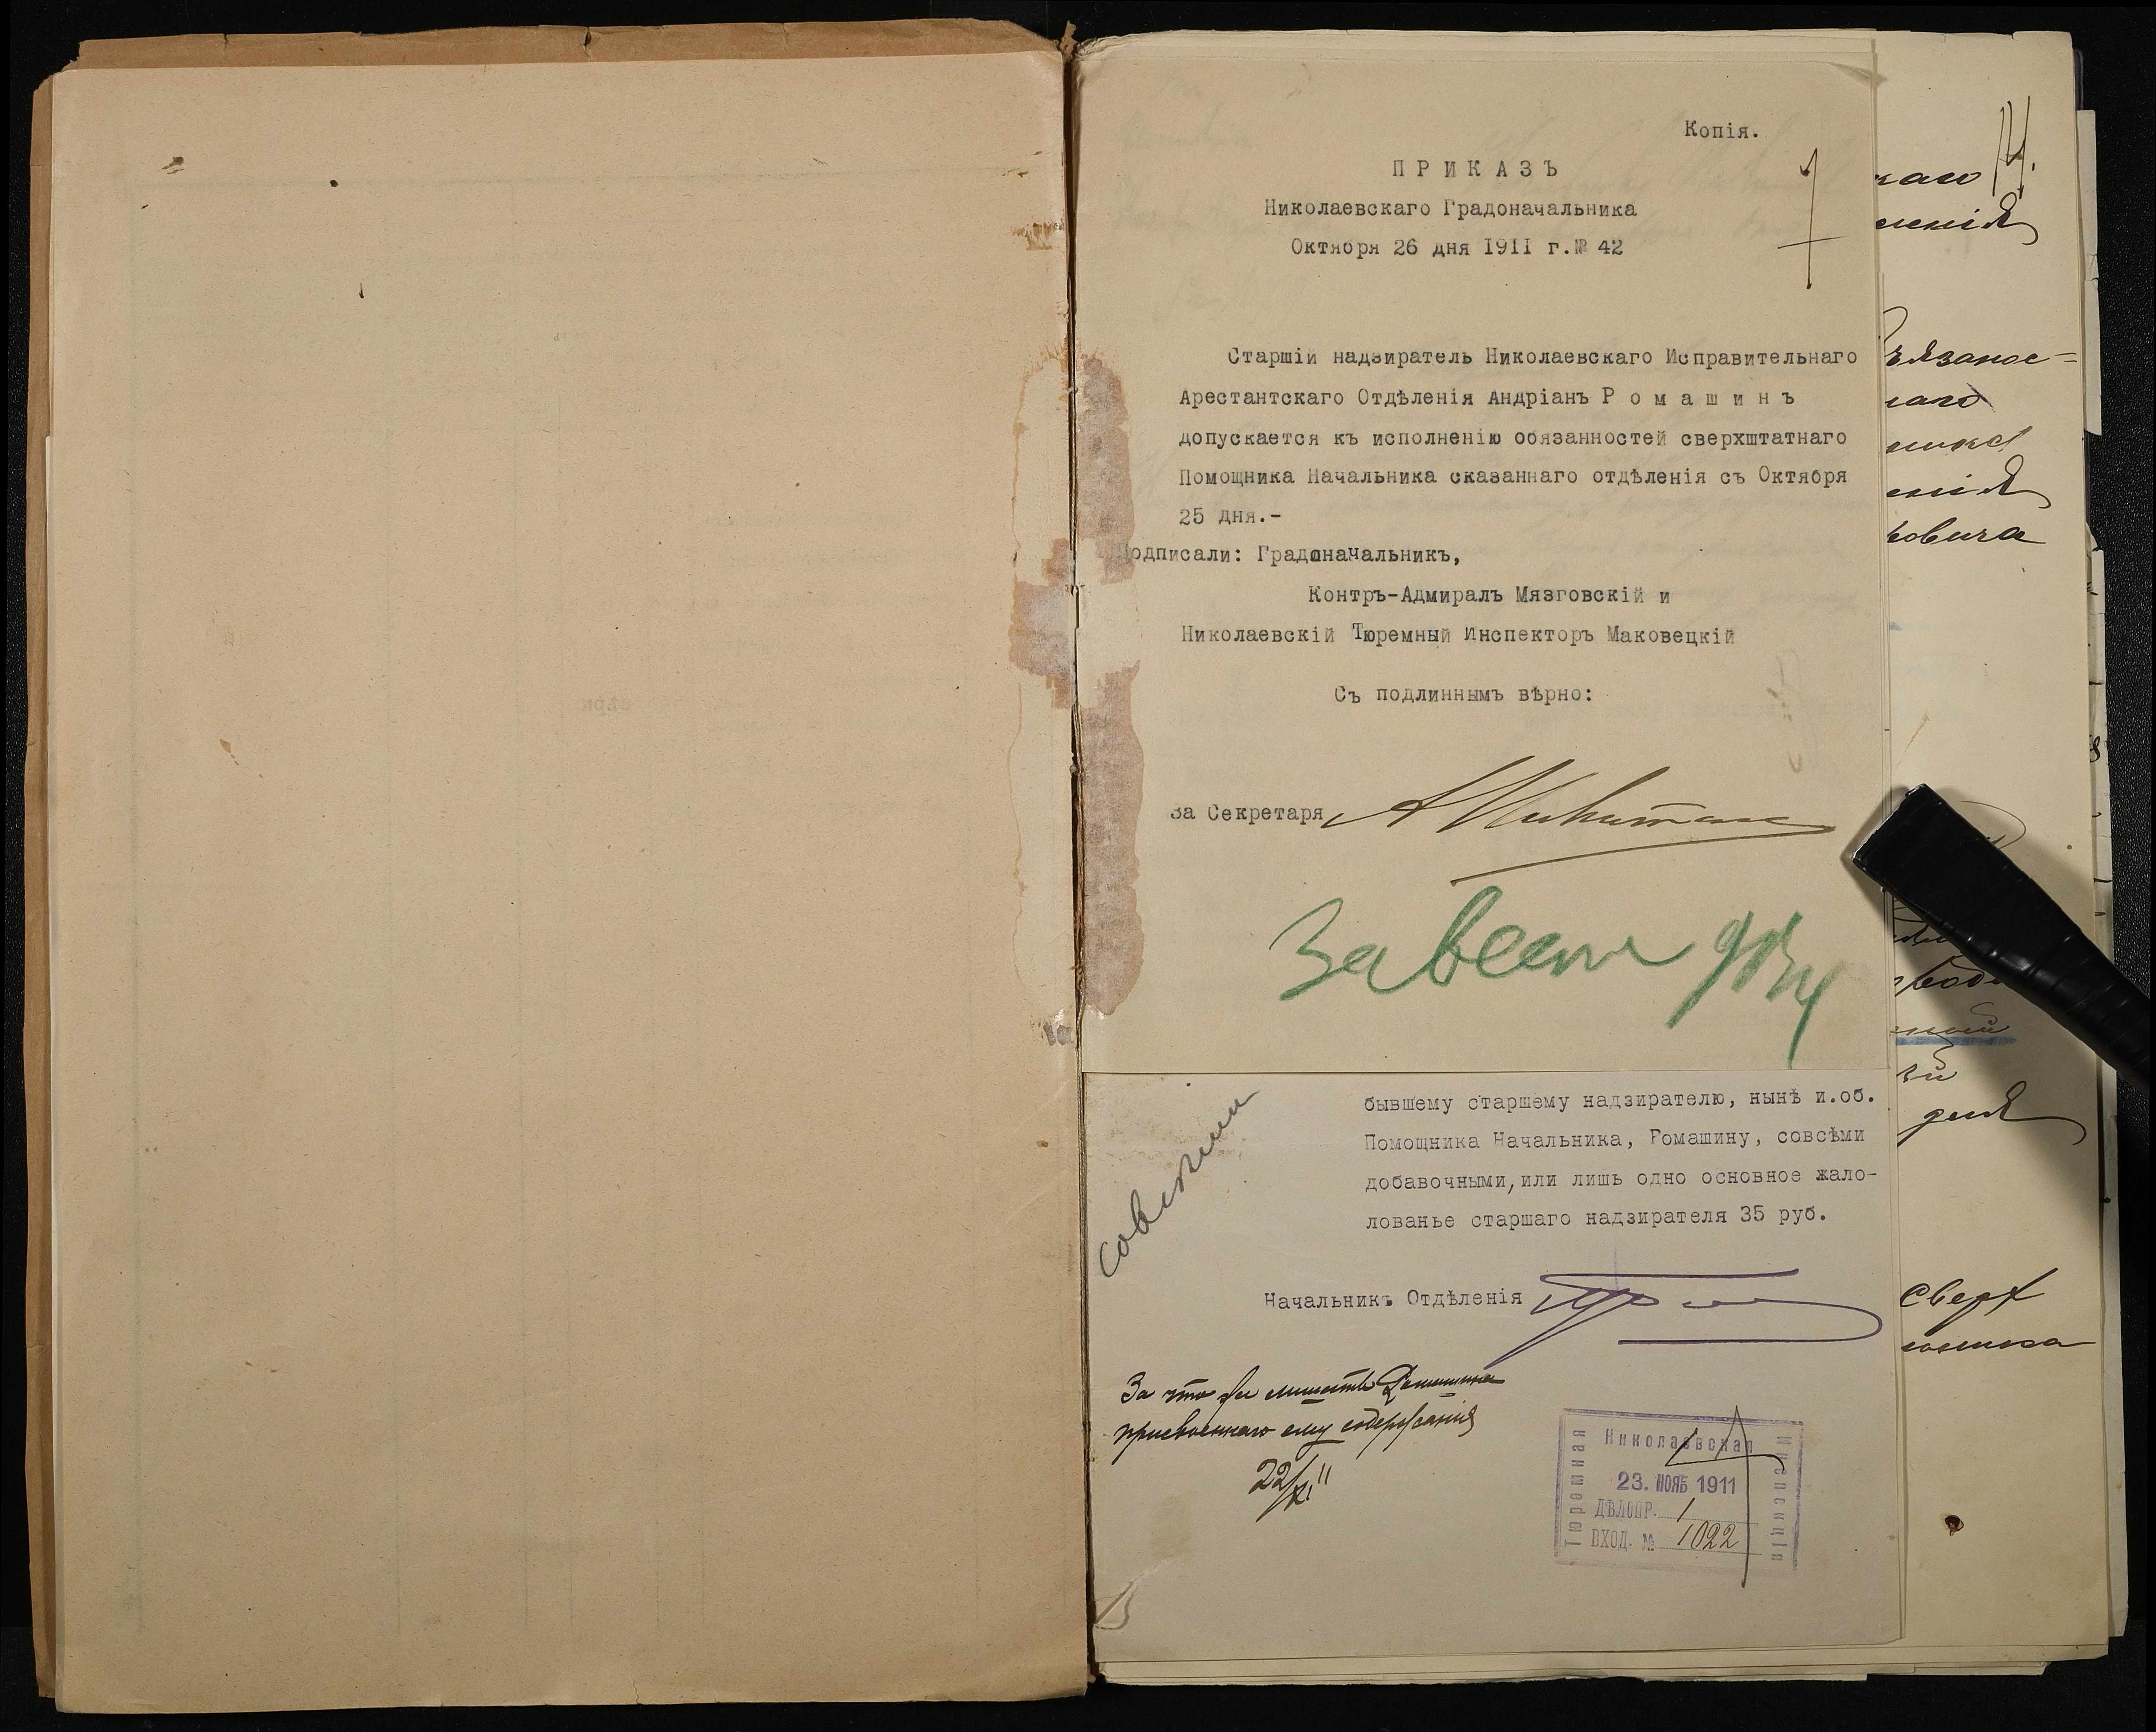 Копія.
ПРИКАЗЪ
Николаевскаго Градоначальника
Октября 26 дня 1911 г.№ 42
Старшій надзиратель Николаевскаго Исправительнаго
Арестантскаго Отдѣленія Андріанъ Ромашинъ
допускается къ исполненію обязанностей сверхштатнаго
Помощника Начальника сказаннаго отдѣленія съ Октября
25 дня.-
Подписали: Градоначальникъ,
Контръ-Адмиралъ Мязговскій и
Николаевскій Тюремный Инспекторъ Маковецкій
Съ подлиннымъ вѣрно:
За Секретаря
Завести
бывшему старшему надзирателю, нынѣ и.об.
Помощника Начальника, Ромашину, совсѣми
добавочными, или лишь одно основное жало-
лованье старшаго надзирателя 35 руб.
Начальникъ Отдѣленія
За что же лишать Ромашина
присвоеннаго ему содержанія
22/XI 11
Николаевская
Тюремная
Инспекція
23. НОЯБ 1911
ДѢЛОПР. 1
ВХОД. № 1022
каго
ленія
нія
ковича
дня
Сверх